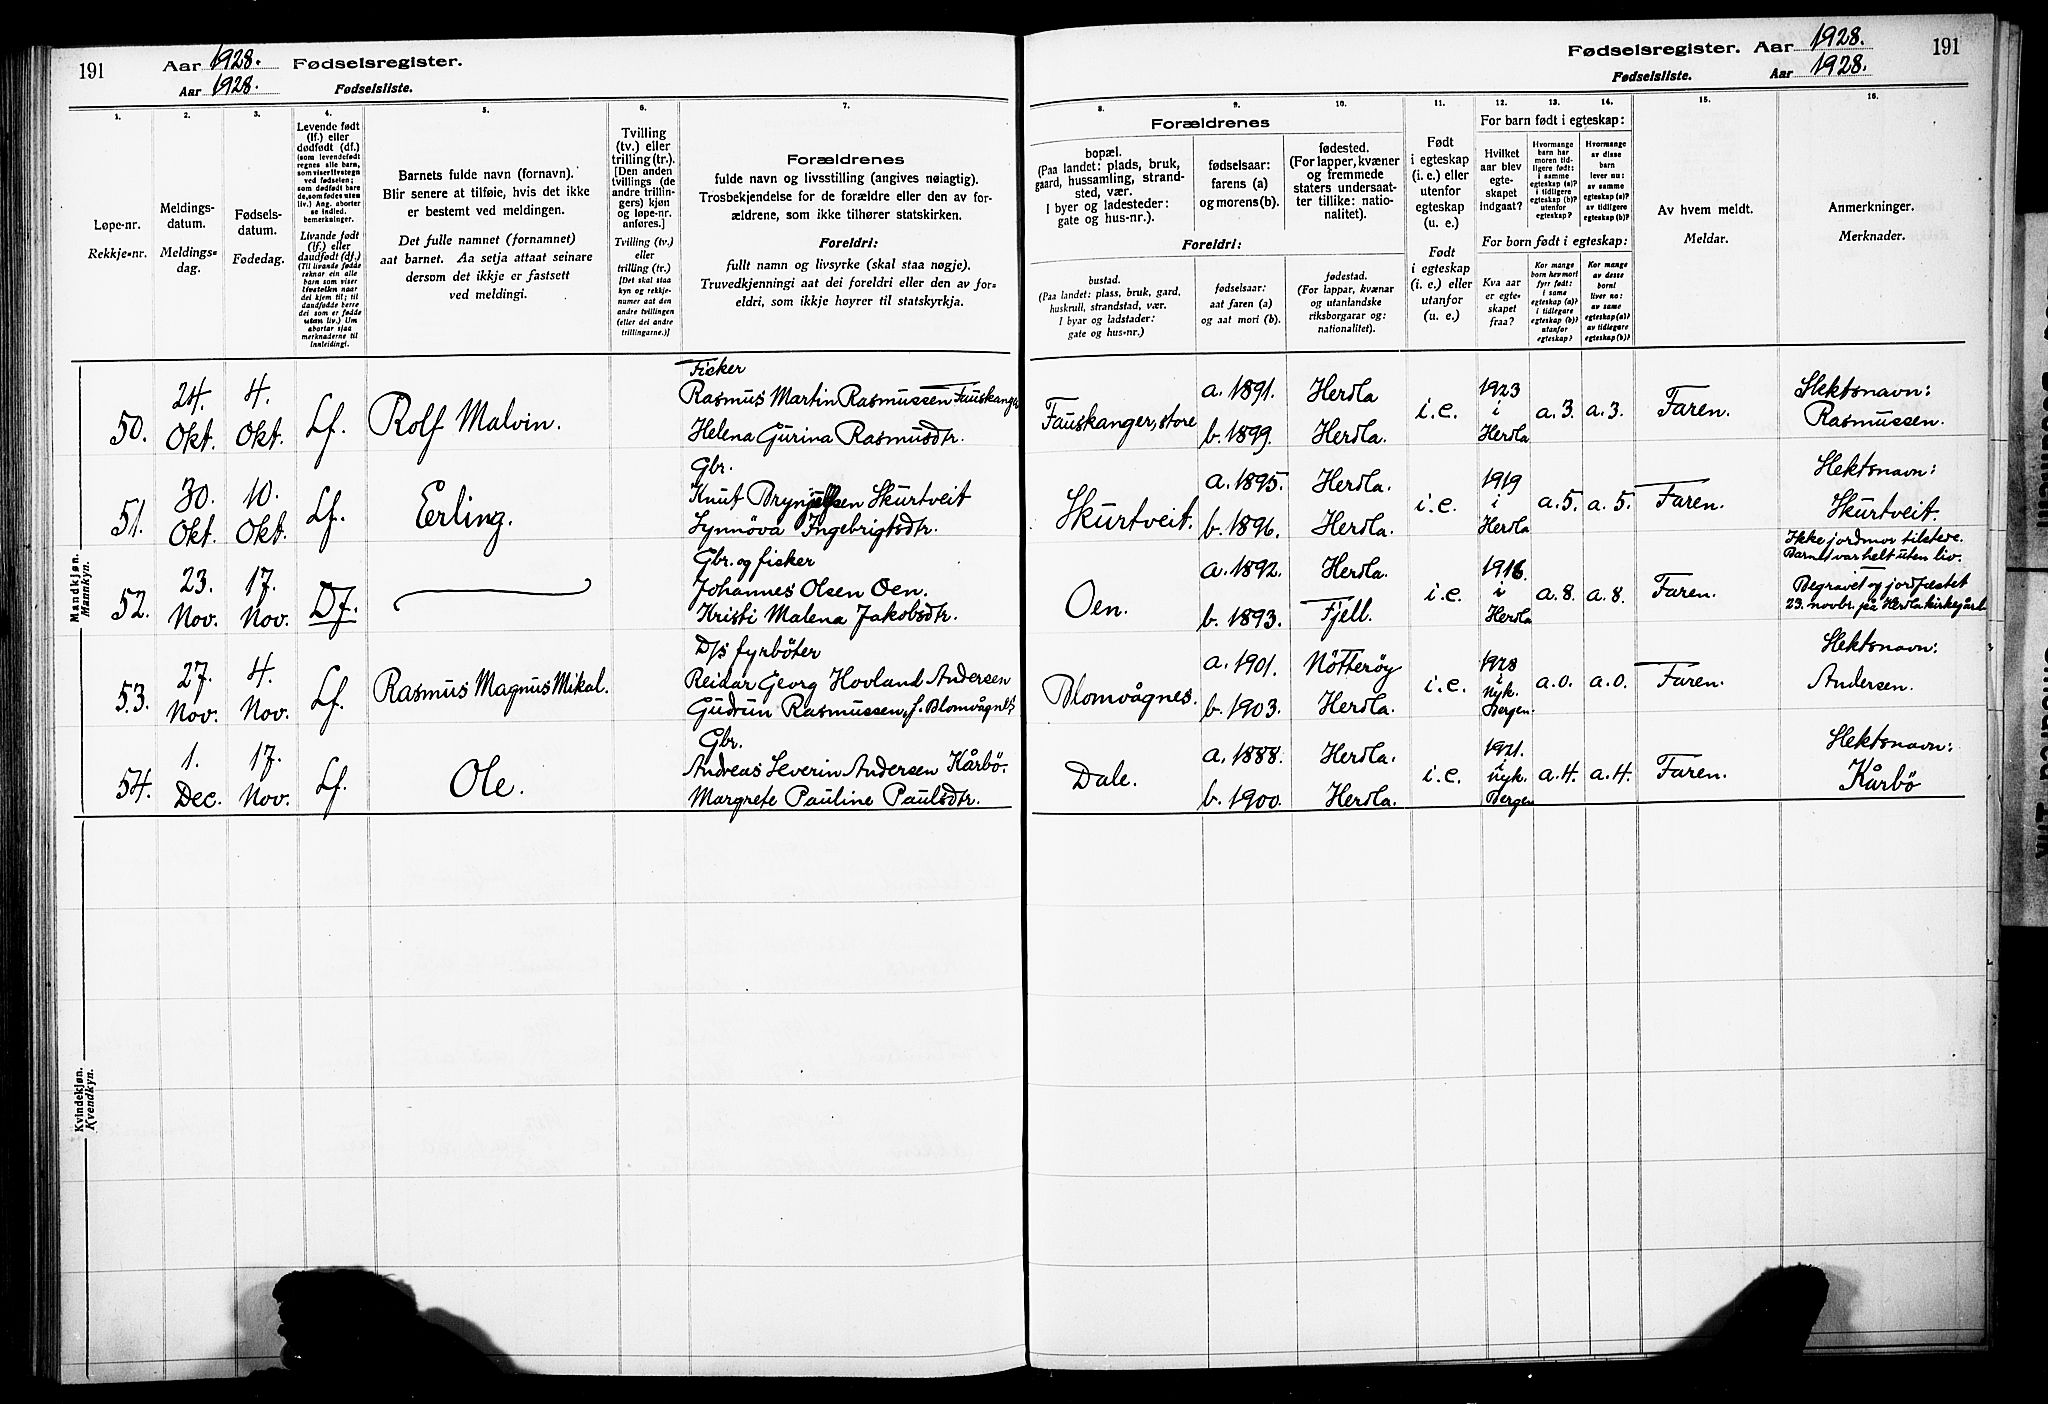 191 Aar 1928. Fødselsregister.
Aar 1928. Fødselsliste.
Fødselsregister. Aar 1928. 191
Fødselsliste. Aar 1928.
1.
Løpe-nr.
Rekkje-nr.
2.
Meldings-
datum.
Meldings-
dag.
3.
Fødsels-
datum.
Fødedag.
4.
Levende født
(lf.) eller
dødfødt (df.)
(som levendefødt
regnes alle barn,
som viser livstegn
ved fødselen;
som dødfødt bare
de, som fødes uten
liv.) Ang. aborter
se indled.
bemerkninger.
Livande født
(lf.) eller
daudfødt (df.)
(Til livande fødde
reknar ein alle
born som viser
livsteikn naar
dei kjem til; til
daudfødde berre
dei som er fødde
utan liv.) Um
abortar sjaa
merknaderne til
innleiding).
5.
Barnets fulde navn (fornavn).
Blir senere at tilføie, hvis det ikke
er bestemt ved meldingen.
Det fulle namnet (fornamnet)
aat barnet. Aa setja attaat seinare
dersom det ikkje er fastsett
ved meldingi.
6.
Tvilling
(tv.) eller
trilling (tr.).
[Den anden
tvillings (de
andre trillin-
gers) kjøn
og løpe-nr.
anføres.]
Tvilling (tv.)
eller
trilling (tr.)
[Det skal staa
kyn og rekkje-
numer aat den
andre tvillingen
(eller dei andre
trillingarne.)]
7.
Forældrenes
fulde navn og livsstilling (angives nøiagtig).
Trosbekjendelse for de forældre eller den av for-
ældrene, som ikke tilhører statskirken.
Foreldri:
fullt namn og livsyrke (skal staa nøgje).
Truvedkjenningi aat dei foreldri eller den av for-
eldri, som ikkje høyrer til statskyrkja.
Forældrenes
8.
bopæl.
(Paa landet: plads, bruk,
gaard, hussamling, strand-
sted, vær.
I byer og ladesteder:
gate og hus-nr.).
9.
fødselsaar:
farens (a)
og morens (b).
10.
fødested.
(For lapper, kvæner
og fremmede
staters undersaat-
ter tillike: natio-
nalitet).
Foreldri:
bustad.
(Paa landet: plass, bruk, gard,
huskrull, strandstad, vær.
I byar og ladstader:
gate og hus-nr.)
fødselsaar:
aat faren (a)
og aat mori (b).
fødestad.
(For lappar, kvænar
og utanlandske
riksborgarar og:
nationalitet).
11.
Født
i egteskap
(i. e.) eller
utenfor
egteskap
(u. e.)
Født
i egteskap
(i. e.) eller
utanfor
(u. e.)
12. 13. 14.
For barn født i egteskap:
Hvilket
aar blev
egte-
skapet
indgaat?
Hvormange
barn har
moren tid-
ligere født:
i samme
egteskap (a)?
i tidligere
egteskap (b)?
utenfor
egteskap?
Hvormange
av disse
barn
lever nu:
av samme
egteskap (a)?
av tidligere
egteskap (b)?
For born født i egteskap:
Kva aar
er egte-
skapet
fraa?
Kor mange
born hev mori
fyrr født:
i same
egteskap (a)?
i tidlegare
egteskap (b)?
utanfor
egteskap?
Kor mange
av desse
borni
liver no:
av same
egteskap (a)?
av tidlegare
egteskap (b)?
15.
Av hvem meldt.
Meldar.
16.
Anmerkninger.
Merknader.
Mandkjøn.
Mannkyn.
50. 24. Okt. 4. Okt. Lf. Rolf Malvin.
Fisker
Rasmus Martin Rasmussen Fauskanger
Helena Gurina Rasmusdtr.
Fauskanger, store a. 1891. Herdla
b. 1899. Herdla.
i.e. 1923 i Herdla a. 3. a. 3. Faren.
Slektsnavn:
Rasmussen.
51. 30. Okt. 10. Okt. Lf. Erling.
Gbr.
Knut Brynjulfsen Skurtveit
Synnöva Ingebrigtsdtr.
Skurtveit. a. 1895. Herdla.
b. 1896. Herdla.
i.e. 1919 i Herdla a. 5. a. 5. Faren.
Slektsnavn:
Skurtveit.
52. 23. Nov. 17. Nov. Df.
Gbr. og fisker
Johannes Olsen Oen.
Kristi Malena Jakobsdtr.
Oen. a. 1892. Herdla.
b. 1893. Fjell.
i.e. 1916 i Herdla a. 8. a. 8. Faren.
Ikke jordmor tilstede.
Barnet var helt uten liv.
Begravet og jordfæstet
23. novbr. på Herdla kirkegård
53. 27. Nov. 4. Nov. Lf. Rasmus Magnus Mikal.
D/s fyrböter
Reidar Georg Hovland Andersen
Gudrun Rasmussen, f. Blomvågnes
Blomvågnes. a. 1901. Nötteröy
b. 1903. Herdla.
i.e. 1928 i nyk. Bergen. a. 0. a. 0. Faren.
Slektsnavn:
Andersen.
54. 1. Dec. 17. Nov. Lf. Ole.
Gbr.
Andreas Severin Andersen Kårbö.
Margrete Pauline Paulsdtr.
Dale. a. 1888. Herdla.
b. 1900. Herdla.
i.e. 1921. i nyk. Bergen a. 4. a. 4. Faren.
Slektsnavn:
Kårbö
Kvindekjøn.
Kvendkyn.